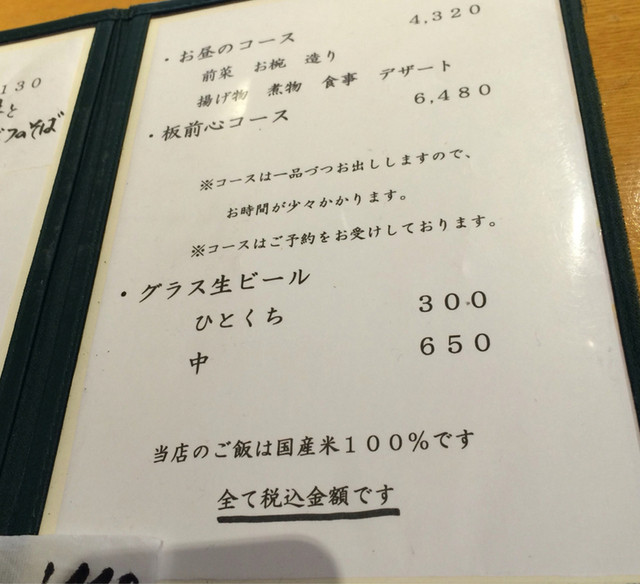 130
と
そば
・お昼のコース 4,320
前菜 お椀 造り
揚げ物 煮物 食事 デザート
・板前心コース 6,480
※コースは一品づつお出ししますので、
お時間が少々かかります。
※コースはご予約をお受けしております。
・グラス生ビール
ひとくち 300
中 650
当店のご飯は国産米100%です
全て税込金額です